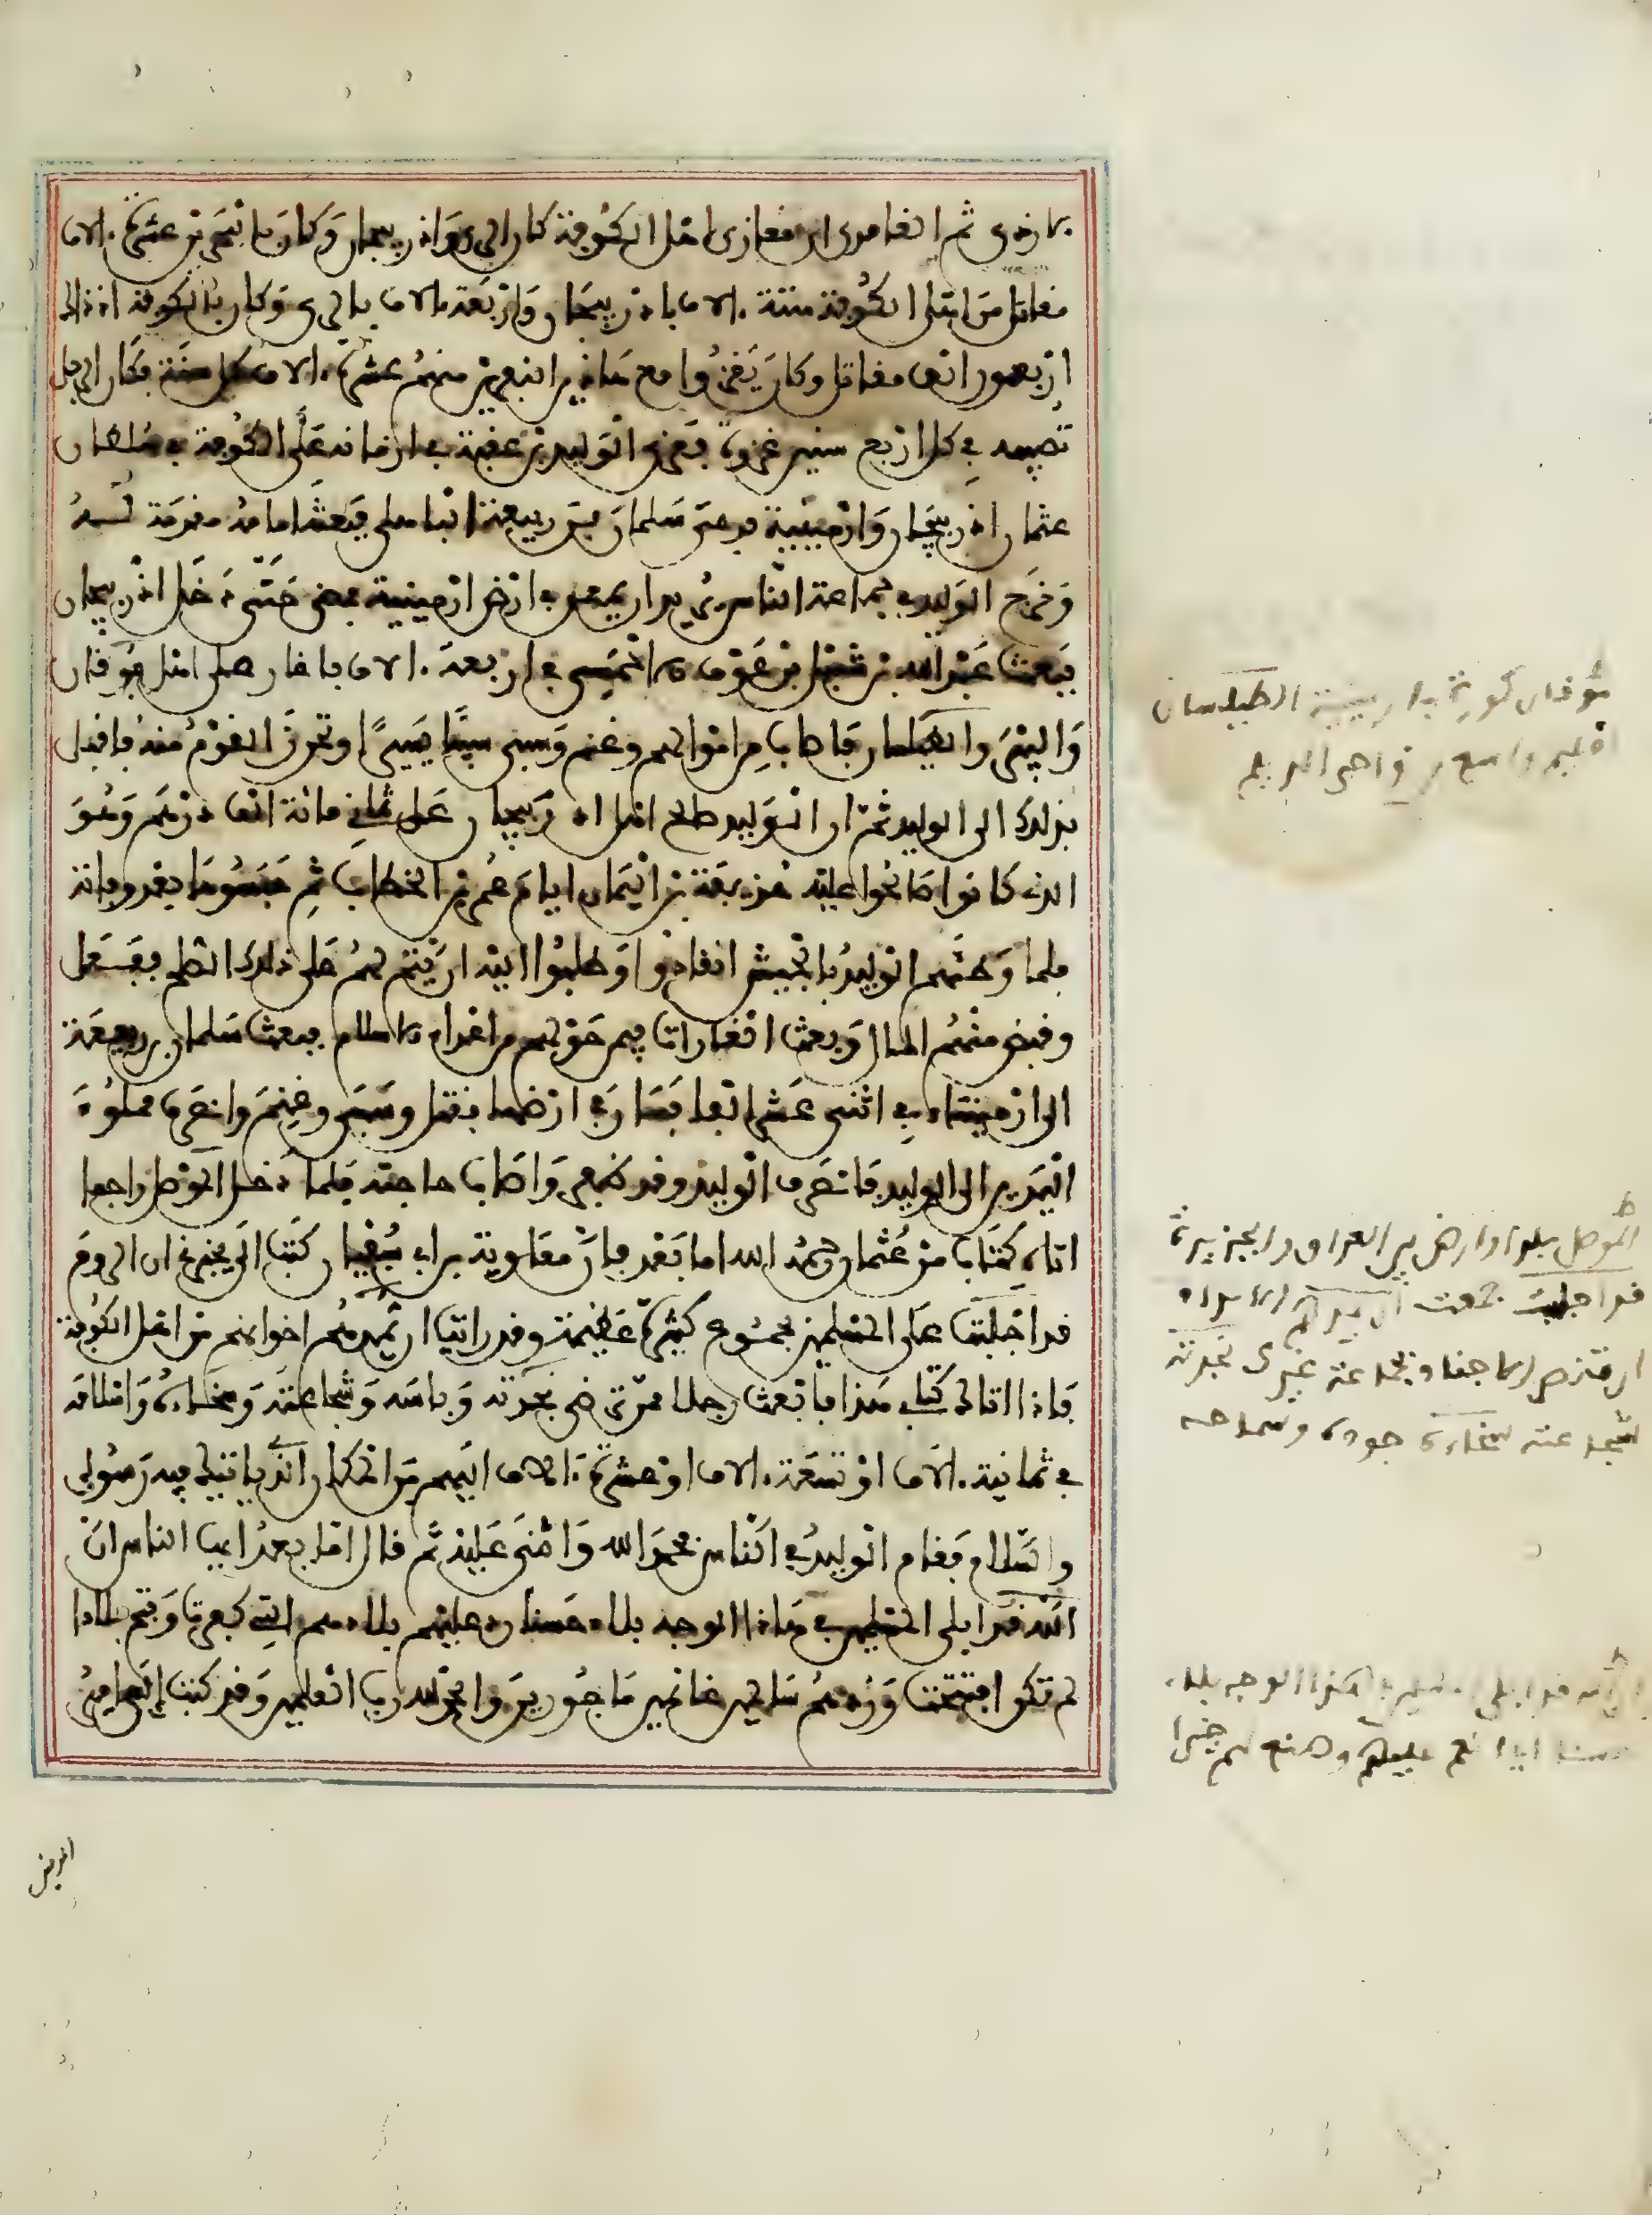 الازدي ثم الغامدي ان مغازي اهل الكوفة كان الري واذربيجان وكان بالثغرين عشرة ءالاف
مقاتل من اهل الكوفة ستة ءالاف باذربيجان واربعة ءالاف بالري وكان بالكوفة اذ ذاك
اربعون الف مقاتل وكان يغزوا هاذين الثغرين منهم عشرة ءالاف كل سنة فكان الرجل
تصيبه في كل اربع سنين غزوة فغزى الوليد بن عقبة في ازمانه على الكوفة في سلطان
عثمان اذربيجان وارمينية فدعى سلمان بن ربيعة الباهلي فبعثه امامه مقدمة له
وخرج الوليد في جماعة الناس يريد ان يمعن في ارض ارمينية فمضى حتى دخل اذربيجان
فبعث عبد الله بن شبيل بن عوف الاحمسي في اربعة ءالاف فاغار على اهل موقان
والببر والطيلسان فاصاب من اموالهم وغنم وسبى سبيا يسيرا وتحرز القوم منه فاقبل
بذلك الى الوليد ثم ان الوليد صالح اهل اذربيجان على ثماني مائة الف درهم وهو
الذي كانوا صالحوا عليه حذيفة بن اليمان ايام عمر بن الخطاب ثم حبسوها بعد وفاته
فلما وطئهم الوليد بالجيش انقادوا وطلبوا اليه ان يتم لهم على ذلك الصلح ففعل
وقبض منهم المال وبعث الغارات فيمن حولهم من اعداء الاسلام فبعث سلمان بن ربيعة
الى ارمينية في اثنى عشر الفا فسار في ارضها فقتل وسبى وغنم وانصرف مملوءة
اليدين الى الوليد فانصرف الوليد وقد ظفر واصاب حاجته فلما دخل الموصل راجعا
اتاه كتاب من عثمان رحمه الله اما بعد فان معاوية بن ابي سفيان كتب الي يخبرني ان الروم
قد اجلبت على المسلمين بجموع كثيرة عظيمة وقد رايت ان يمدهم اخوانهم من اهل الكوفة
فاذا اتاك كتابي هذا فابعث رجلا ممن ترضى نجدته وباسه وشجاعته وسخاءه واسلامه
في ثمانية ءالاف او تسعة ءالاف او عشرة ءالاف اليهم من المكان الذي ياتيك فيه رسولي
والسلام فقام الوليد في الناس فحمد الله واثنى عليه ثم قال اما بعد ايها الناس ان
الله قد ابلى المسلمين في هاذا الوجه بلاء حسنا رد عليهم بلادهم التي كفرت وفتح بلادا
لم تكن افتتحت وردهم سالمين غانمين ماجورين والحمد لله رب العلمين وقد كتب الي امير
موقان كورة بارمينية الطيلسان
اقليم واسع من نواحي الديلم
الموصل بلد او ارض بين العراق والجزيرة
قد اجلبت جمعت
نجدته
شجاعته سخاءه جوده وسماحه
الله قد ابلى المسلمين في هذا الوجه بلاء
حسنا اي انعم عليهم وصنع لهم خيرا